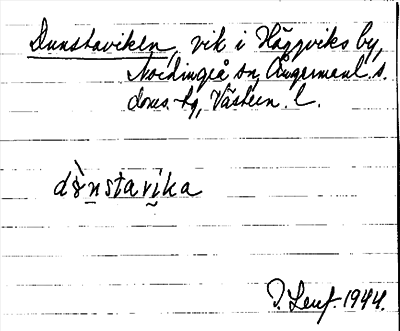 Dunstaviken, vik i Häggviks by,
Nordingrå sn, Ångermanl. s.
doms. tg, Västern. l.
dɵ̀nstavika
P. Lenf. 1944.